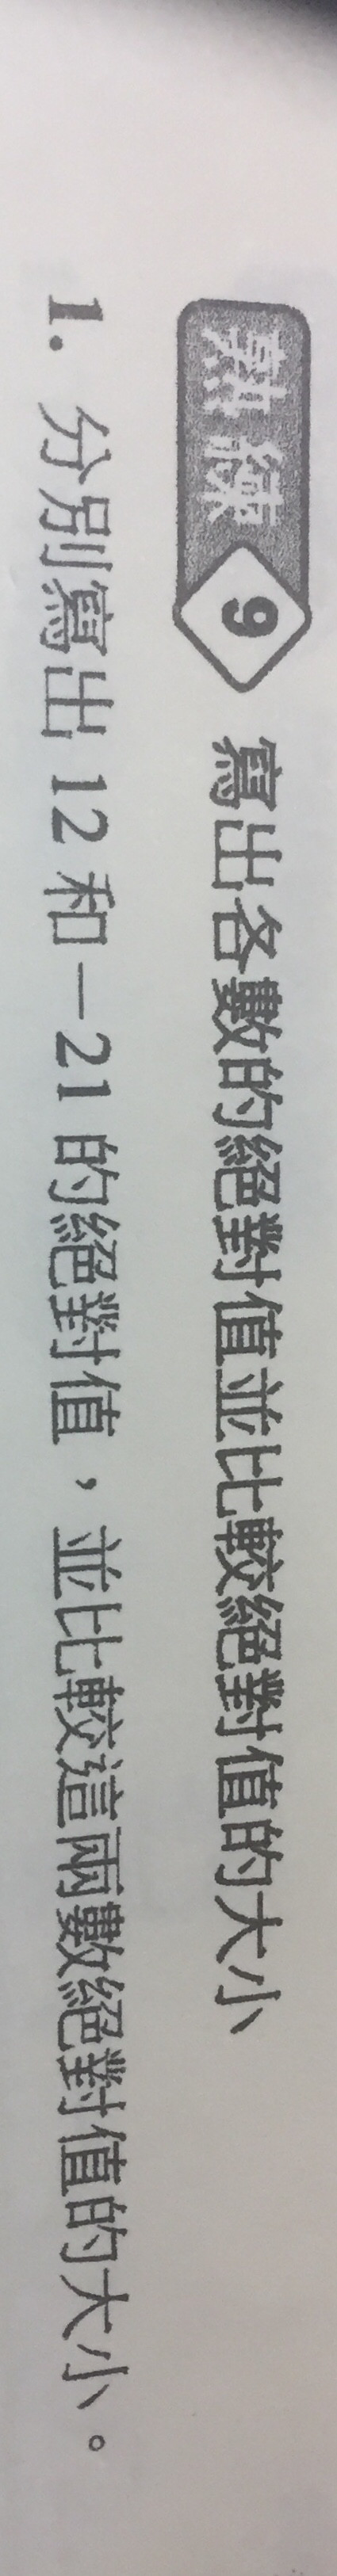 熟練 9 寫出各數的絕對值並比較絕對值的大小
1. 分別寫出 12 和－21 的絕對值，並比較這兩數絕對值的大小。